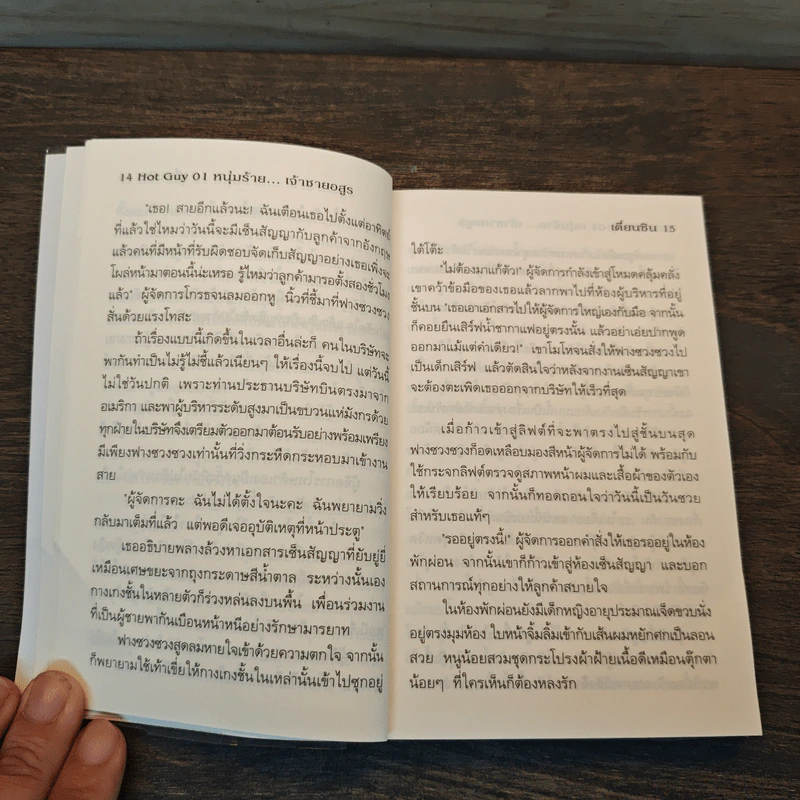 14 Hot Guy 01 หนุ่มร้าย... เจ้าชายอสูร
"เธอ! สายอีกแล้วนะ! ฉันเตือนเธอไปตั้งแต่อาทิตย์
ที่แล้วใช่ไหมว่าวันนี้จะมีเซ็นสัญญากับลูกค้าจากอังกฤษ
แล้วคนที่มีหน้าที่รับผิดชอบจัดเก็บสัญญาอย่างเธอเพิ่งจะ
โผล่หน้ามาตอนนี้น่ะเหรอ รู้ไหมว่าลูกค้ามารอตั้งสองชั่วโมง
แล้ว" ผู้จัดการโกรธจนลมออกหู นิ้วที่ชี้มาที่ฟางซวงซวง
สั่นด้วยแรงโทสะ
ถ้าเรื่องแบบนี้เกิดขึ้นในเวลาอื่นล่ะก็ คนในบริษัทจะ
พากันทำเป็นไม่รู้ไม่ชี้แล้วเนียนๆ ให้เรื่องนี้จบไป แต่วันนี้
ไม่ใช่วันปกติ เพราะท่านประธานบริษัทบินตรงมาจาก
อเมริกา และพาผู้บริหารระดับสูงมาเป็นขบวนแห่มังกรด้วย
ทุกฝ่ายในบริษัทจึงเตรียมตัวออกมาต้อนรับอย่างพร้อมเพรียง
มีเพียงฟางซวงซวงเท่านั้นที่วิ่งกระหืดกระหอบมาเข้างาน
สาย
"ผู้จัดการคะ ฉันไม่ได้ตั้งใจนะคะ ฉันพยายามวิ่ง
กลับมาเต็มที่แล้ว แต่พอดีเจออุบัติเหตุที่หน้าประตู"
เธออธิบายพลางล้วงหาเอกสารเซ็นสัญญาที่ยับยู่ยี่
เหมือนเศษขยะจากถุงกระดาษสีน้ำตาล ระหว่างนั้นเอง
กางเกงชั้นในหลายตัวก็ร่วงหล่นลงบนพื้น เพื่อนร่วมงาน
ที่เป็นผู้ชายพากันเบือนหน้าหนีอย่างรักษามารยาท
ฟางซวงซวงสูดลมหายใจเข้าด้วยความตกใจ จากนั้น
ก็พยายามใช้เท้าเขี่ยให้กางเกงชั้นในเหล่านั้นเข้าไปซุกอยู่
เตี่ยนซิน 15
ใต้โต๊ะ
"ไม่ต้องมาแก้ตัว!" ผู้จัดการกำลังเข้าสู่โหมดคลุ้มคลั่ง
เขาคว้าข้อมือของเธอแล้วลากพาไปที่ห้องผู้บริหารที่อยู่
ชั้นบน "เธอเอาเอกสารไปให้ผู้จัดการใหญ่เองกับมือ จากนั้น
ก็คอยยืนเสิร์ฟน้ำชากาแฟอยู่ตรงนั้น แล้วอย่าเอ่ยปากพูด
ออกมาแม้แต่คำเดียว!" เขาโมโหจนสั่งให้ฟางซวงซวงไป
เป็นเด็กเสิร์ฟ แล้วตัดสินใจว่าหลังจากงานเซ็นสัญญาเขา
จะต้องตะเพิดเธอออกจากบริษัทให้เร็วที่สุด
เมื่อก้าวเข้าสู่ลิฟต์ที่จะพาตรงไปสู่ชั้นบนสุด
ฟางซวงซวงก็อดเหลือบมองสีหน้าผู้จัดการไม่ได้ พร้อมกับ
ใช้กระจกลิฟต์ตรวจดูสภาพหน้าผมและเสื้อผ้าของตัวเอง
ให้เรียบร้อย จากนั้นก็ทอดถอนใจว่าวันนี้เป็นวันซวย
สำหรับเธอแท้ๆ
"รออยู่ตรงนี้!" ผู้จัดการออกคำสั่งให้เธอรออยู่ในห้อง
พักผ่อน จากนั้นเขาก็ก้าวเข้าสู่ห้องเซ็นสัญญา และบอก
สถานการณ์ทุกอย่างให้ลูกค้าสบายใจ
ในห้องพักผ่อนยังมีเด็กหญิงอายุประมาณเจ็ดขวบนั่ง
อยู่ตรงมุมห้อง ใบหน้าจิ้มลิ้มเข้ากับเส้นผมหยักศกเป็นลอน
สวย หนูน้อยสวมชุดกระโปรงผ้าฝ้ายเนื้อดีเหมือนตุ๊กตา
น้อยๆ ที่ใครเห็นก็ต้องหลงรัก